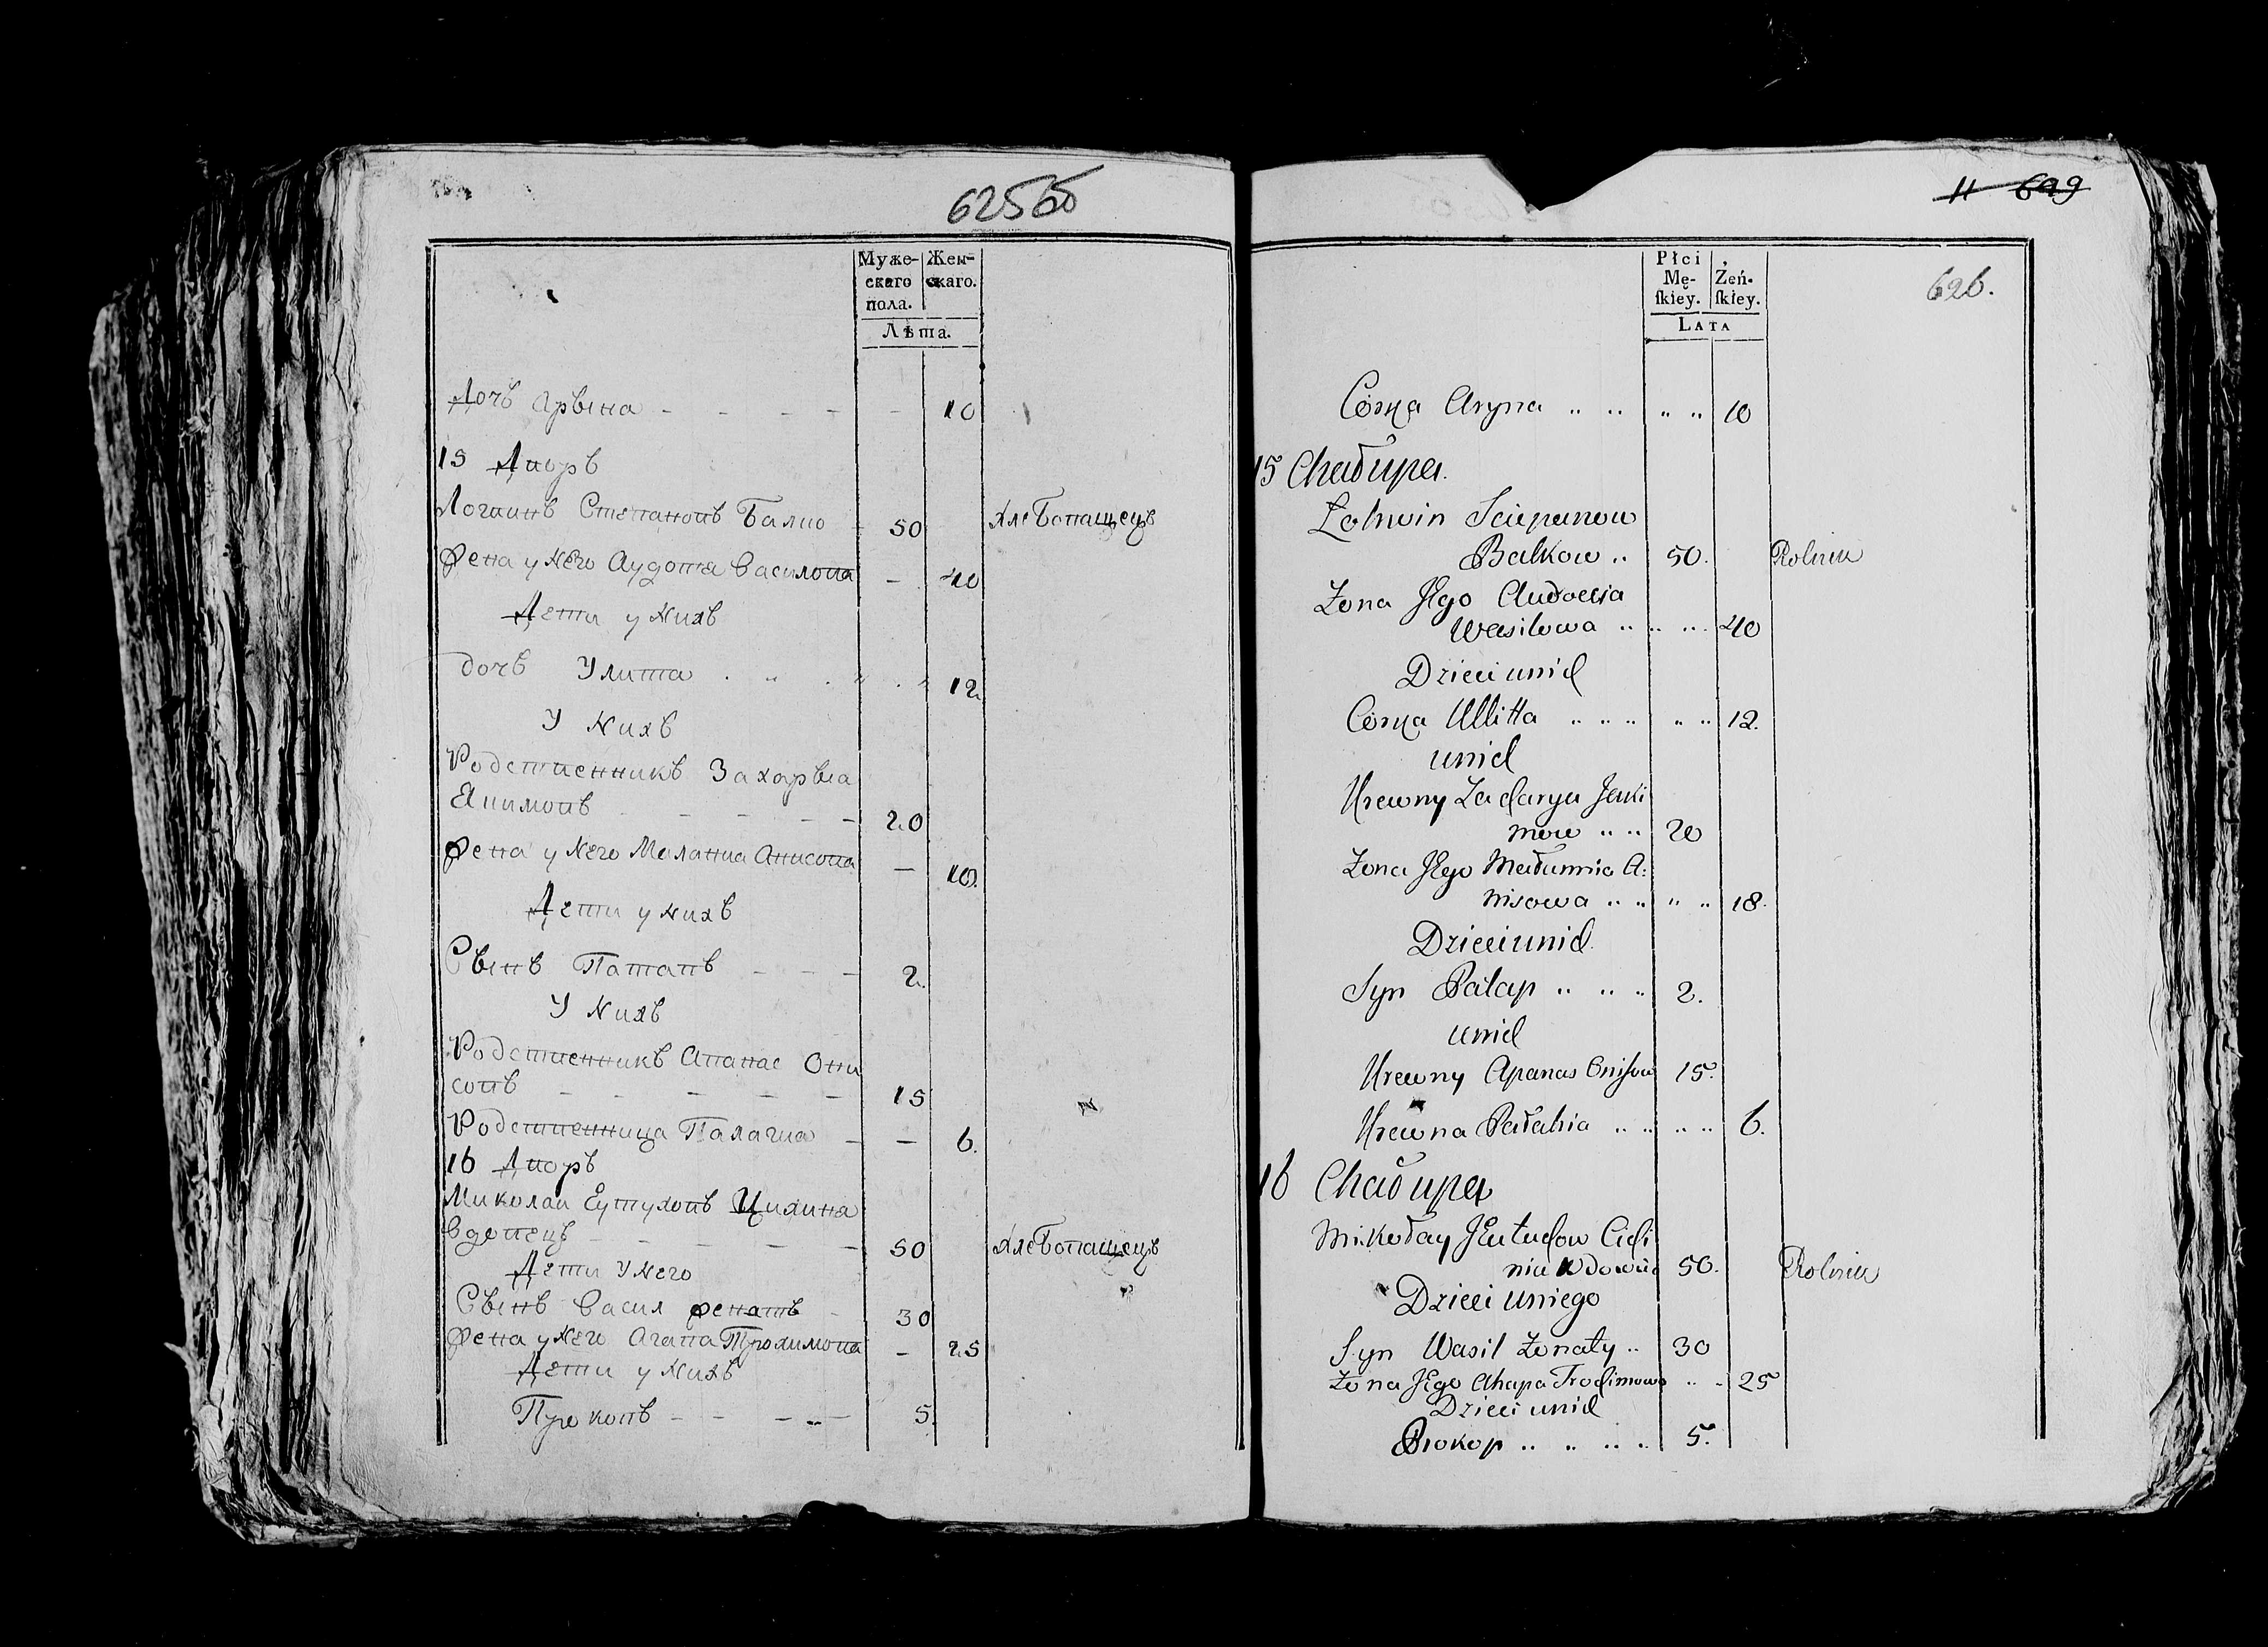 625об
Муже-
скаго
пола.
Жен-
скаго.
Лѣта.
Дочъ Арына 10
15 Дворъ
Логвинъ Степановъ Балко 50 хлебопашецъ
Жена у него Аудотя Василова 40
Дети у нихъ
дочъ Улита 12
У нихъ
Родственникъ Захарыа
Якимовъ 20
Жена у него Маланиа Анисова 18
Дети у нихъ
Сынъ Патапъ 2
У нихъ
Родственникъ Апанас Они
совъ 15
Родственница Палагиа 6.
16 Дворъ
Миколай Еутуховъ Цихиня
вдовецъ 50 хлебопашецъ
Дети у него
Сынъ Васил женатъ 30
Жена у него Агапа Трохимова 25
Дети у нихъ
Прокопъ 5
11 699
626.
Płci
Mę-
ſkiey.
Żeń-
ſkiey.
LATA
Córka Aryna 10
15 Chałupa.
Łohwin Sciepanow
Bałkow 50. Rolnik
Zona Jego Audoccia
Wasilowa 40
Dzieci unich
Córka Ullitta 12.
unich
Krewny Zacharya Jaki
mow 20
Zona Jego Małannia A:
nisowa 18.
Dzieci unich
Syn Patap 2.
unich
Krewny Apanas Onisow 15.
Krewna Pałahia 6.
16 Chałupa
Mikołay Jeutuchow Cichi
nia Wdowiec 50. Rolnik
Dzieci uniego
Syn Wasil Zonaty 30
Zona Jego Ahapa Trochimowa 25
Dzieci unich
Prokop 5.